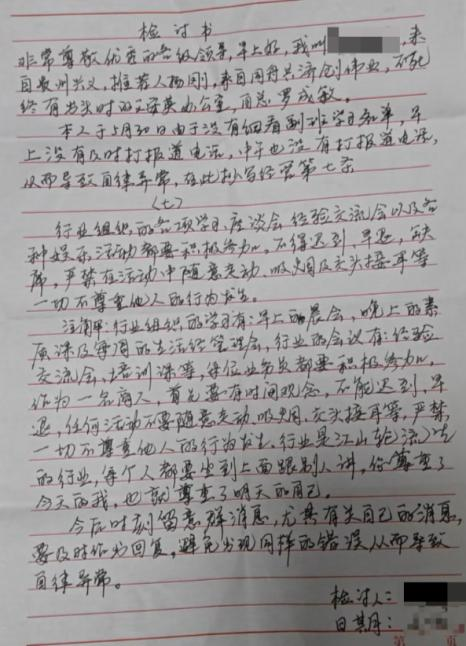 检讨书
非常尊敬优秀的各级领导,早上好,我叫 来
自贵州兴义,推荐人杨刚,来自同舟共济创伟业,不死
终有出头时的 办公室,自总罗成敏。
本人于1月30日由于没有细看副班学习名单,早
上没有及时打报道电话,中午也没有打报道电话,
从而导致自律异常,在此抄写经营第七条
(七)
行业组织的各项学习、座谈会、经验交流会以及各
种娱乐活动都要积极参加。不得迟到、早退,缺
席,严禁在活动中随意走动、吸烟及交头接耳等
一切不尊重他人的行为发生。
注解:行业组织的学习有:早上的晨会,晚上的素
质课及每周的生活经管理会,行业的会议有:经验
交流会、培训课等,每位业务员都要积极参加。
作为一名商人,首先要有时间观念,不能迟到、早
退,任何活动不要随意走动、吸烟、交头接耳等,严禁
一切不尊重他人的行为发生。行业是江山轮流坐
的行业,每个人都要坐到上面跟别人讲,你尊重了
今天的我,也就尊重了明天的自己。
今后时刻留意群消息,尤其有关自己的消息,
要及时作出回复,避免出现同样的错误从而导致
自律异常。
检讨人:
日期:
第 页